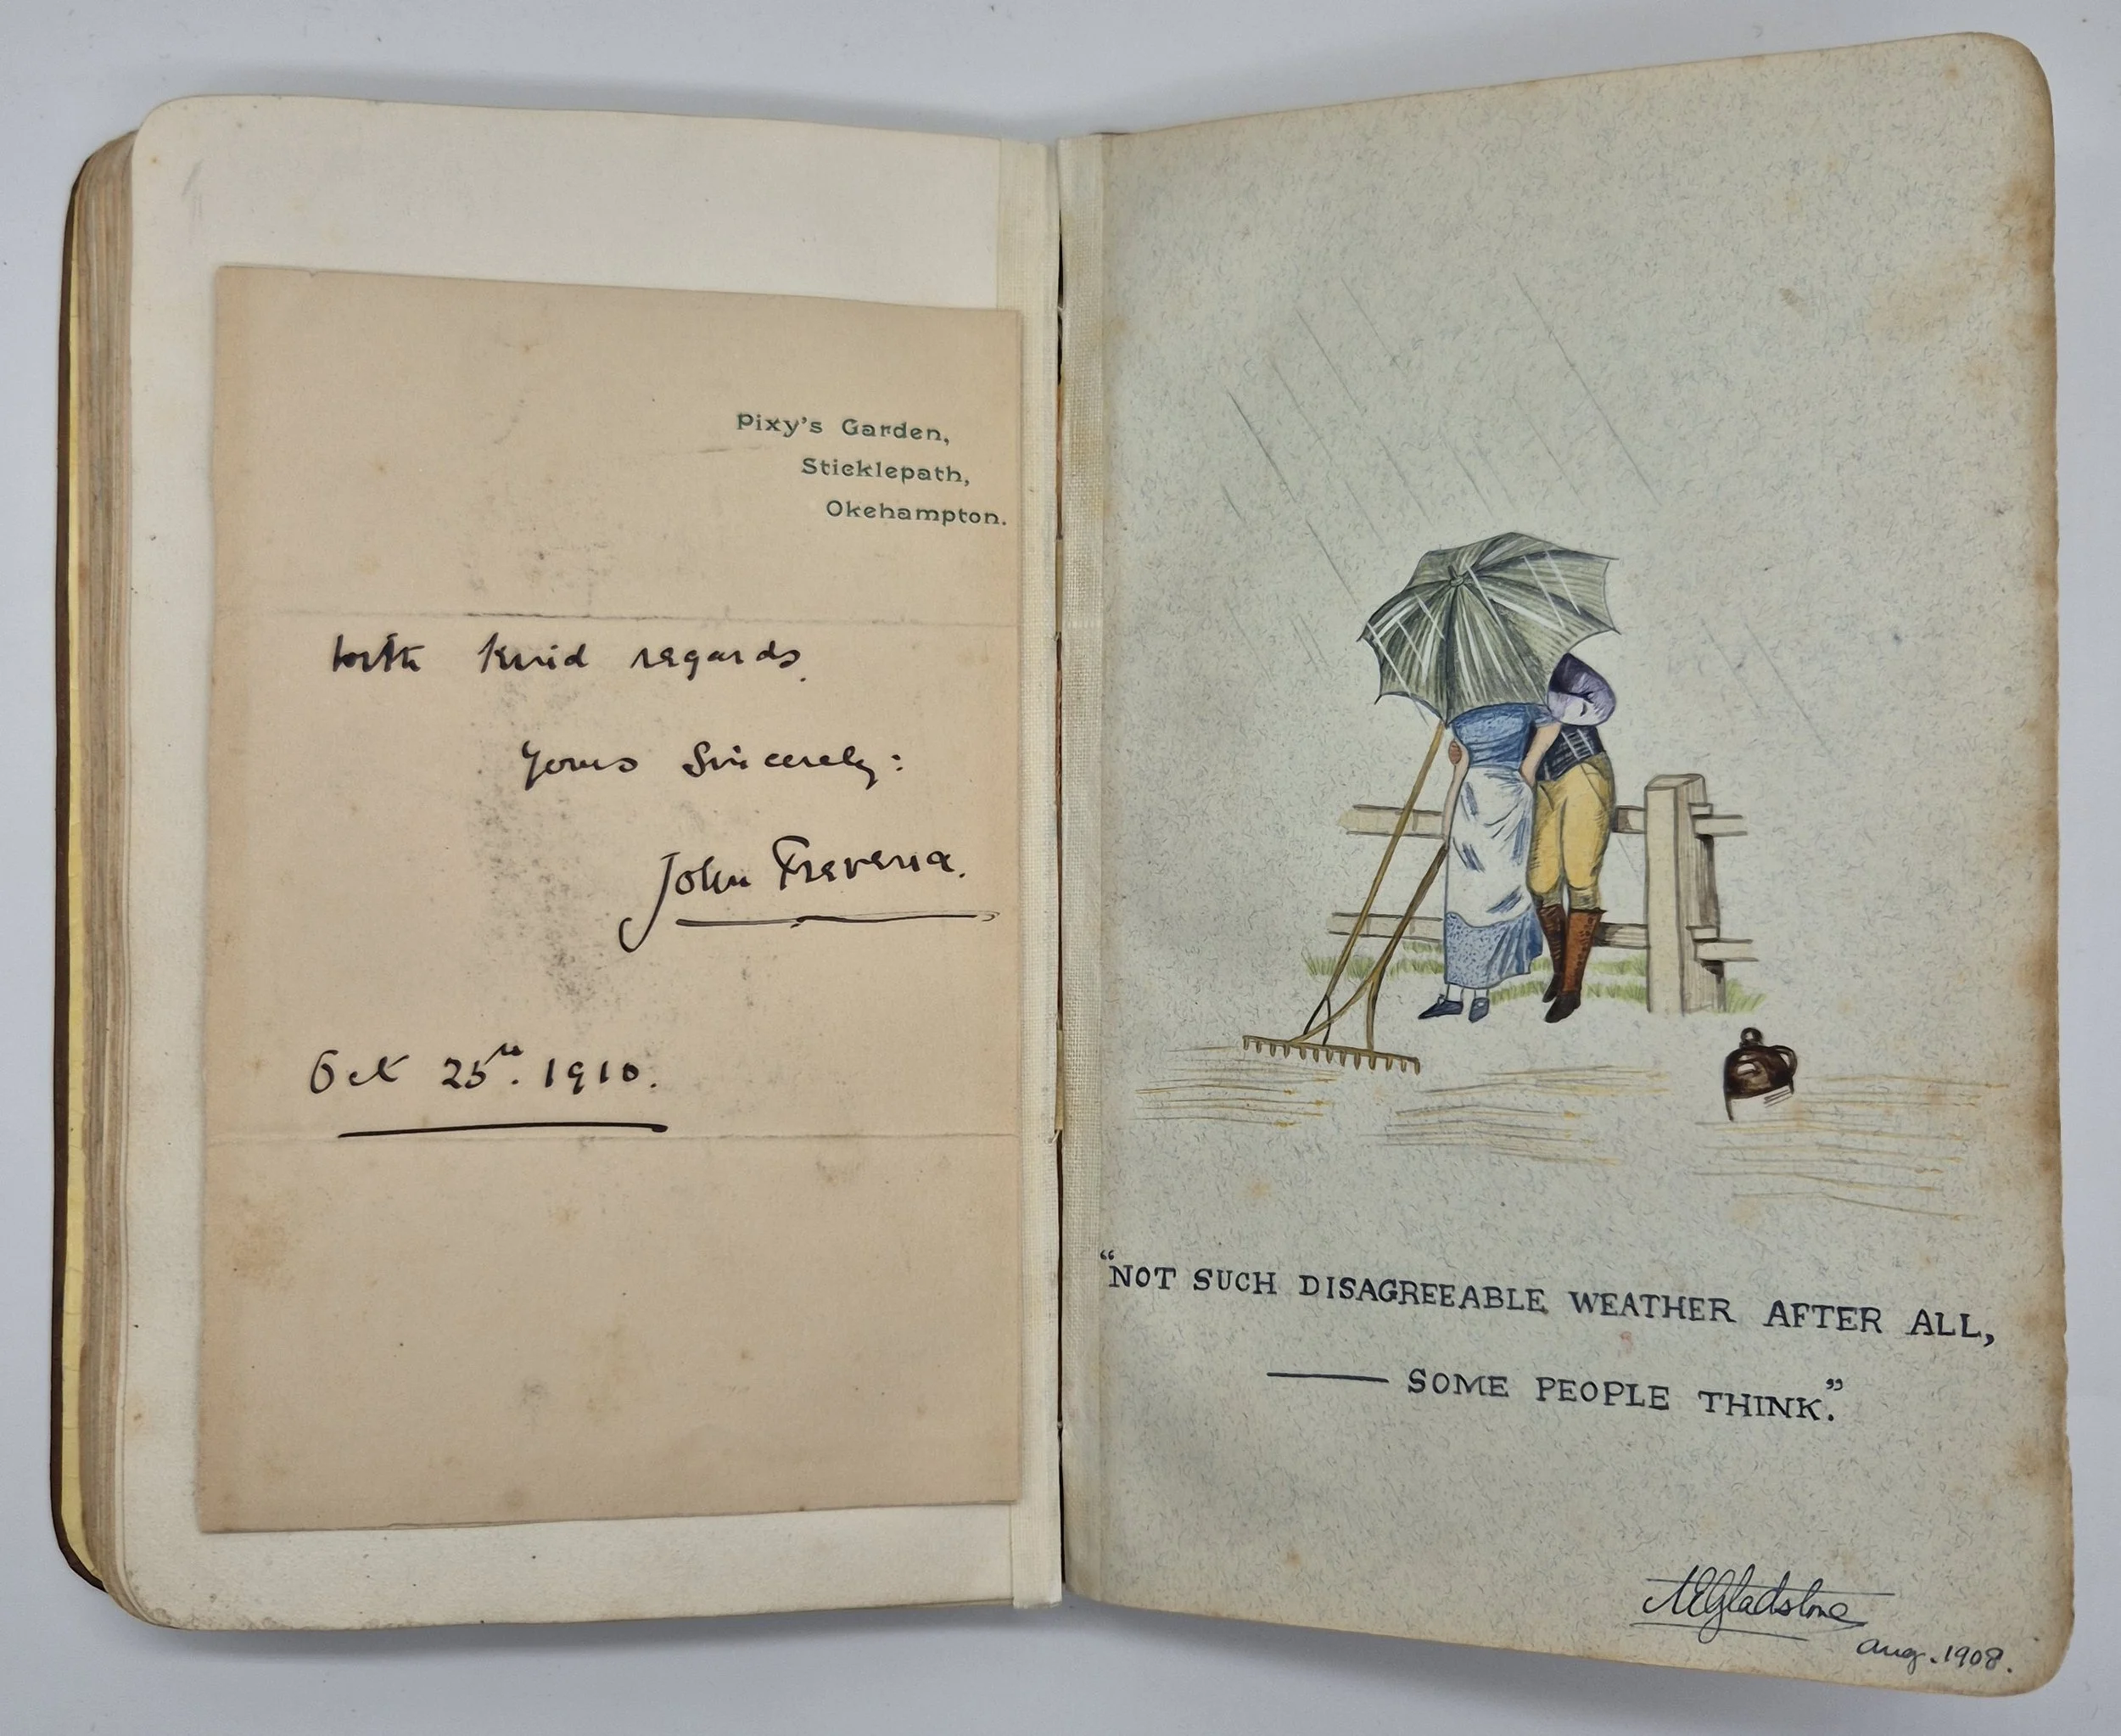 Pixy's Garden,
Sticklepath,
Okehampton.
With kind regards.
Yours Sincerely:
John Trevena.
Oct 25th. 1910.
"NOT SUCH DISAGREEABLE WEATHER AFTER ALL,
— SOME PEOPLE THINK."
Gladstone
Aug. 1908.